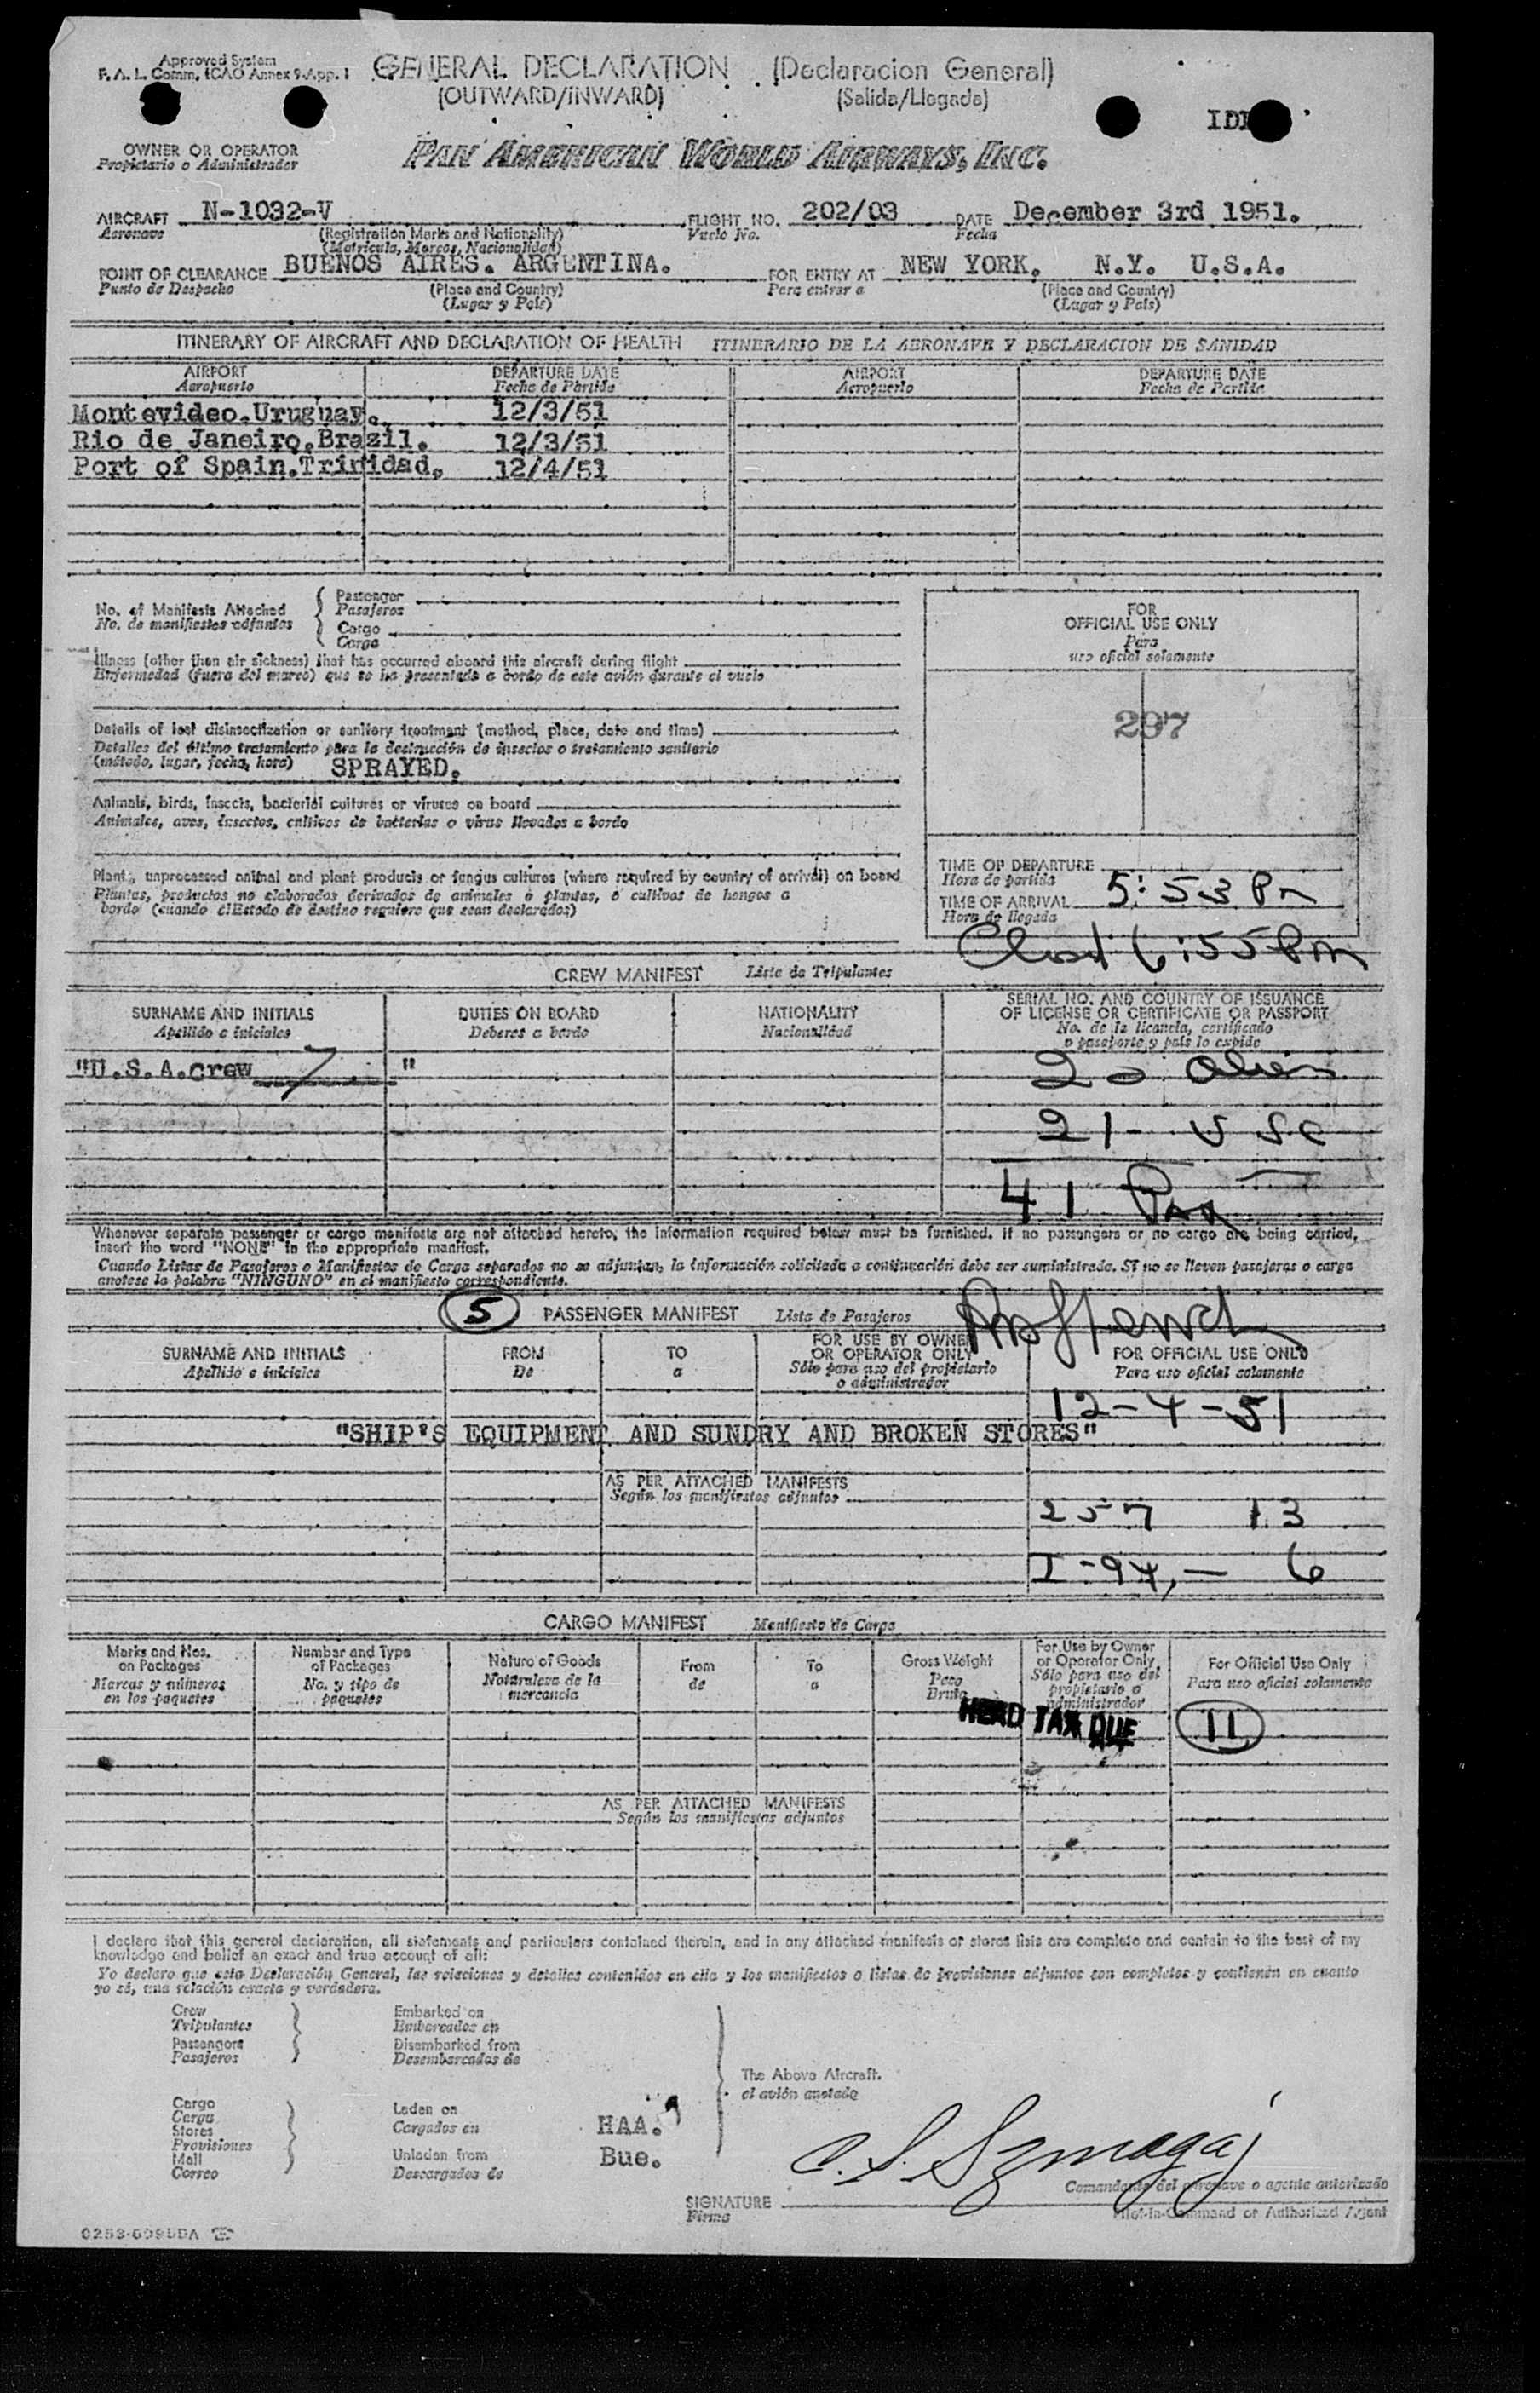 Approved System
F. A. L. Comm. ICAO Annex 9-App. 1
GENERAL DECLARATION (Declaracion General)
(OUTWARD/INWARD) (Salida/Llegada)
OWNER OR OPERATOR
Propietario o Administrador
PAN AMERICAN WORLD AIRWAYS, INC.
AIRCRAFT N-1032-V FLIGHT NO. 202/03 DATE December 3rd 1951.
Aeronave (Registration Marks and Nationality) Vuelo No. Fecha
(Matricula, Marcas, Nacionalidad)
POINT OF CLEARANCE BUENOS AIRES. ARGENTINA. FOR ENTRY AT NEW YORK. N.Y. U.S.A.
Punto de Despacho (Place and Country) Para entrar a (Place and Country)
(Lugar y País) (Lugar y País)
ITINERARY OF AIRCRAFT AND DECLARATION OF HEALTH ITINERARIO DE LA AERONAVE Y DECLARACION DE SANIDAD
AIRPORT DEPARTURE DATE AIRPORT DEPARTURE DATE
Aeropuerto Fecha de Partida Aeropuerto Fecha de Partida
Montevideo.Uruguay. 12/3/51
Rio de Janeiro.Brazil. 12/3/51
Port of Spain.Trinidad. 12/4/51
No. of Manifests Attached
No. de manifiestos adjuntos
Passenger
Pasajeros
Cargo
Carga
Illness (other than air sickness) that has occurred aboard this aircraft during flight
Enfermedad (fuera del mareo) que se ha presentado a bordo de este avión durante el vuelo
Details of last disinsectization or sanitary treatment (method, place, date and time)
Detalles del último tratamiento para la destrucción de insectos o tratamiento sanitario
(método, lugar, fecha, hora) SPRAYED.
Animals, birds, insects, bacterial cultures or viruses on board
Animales, aves, insectos, cultivos de bacterias o virus llevados a bordo
Plants, unprocessed animal and plant products or fungus cultures (where required by country of arrival) on board
Plantas, productos no elaborados derivados de animales o plantas, o cultivos de hongos a
bordo (cuando el Estado de destino requiere que sean declarados)
FOR
OFFICIAL USE ONLY
Para
uso oficial solamente
297
TIME OF DEPARTURE
Hora de partida
TIME OF ARRIVAL 5:53 Pm
Hora de llegada
6:55 Pm
CREW MANIFEST Lista de Tripulantes
SURNAME AND INITIALS DUTIES ON BOARD NATIONALITY SERIAL NO. AND COUNTRY OF ISSUANCE
OF LICENSE OR CERTIFICATE OR PASSPORT
Apellido e iniciales Deberes a bordo Nacionalidad No. de la licencia, certificado
o pasaporte y país lo expide
"U.S.A.crew 7 " 20 Alien
21- USC
41 Pax
Whenever separate passenger or cargo manifests are not attached hereto, the information required below must be furnished. If no passengers or no cargo are being carried,
insert the word "NONE" in the appropriate manifest.
Cuando Listas de Pasajeros o Manifiestos de Carga separados no se adjuntan, la información solicitada a continuación debe ser suministrada. SI no se lleven pasajeros o carga
anotese la palabra "NINGUNO" en el manifiesto correspondiente.
5 PASSENGER MANIFEST Lista de Pasajeros
SURNAME AND INITIALS FROM TO FOR USE BY OWNER
OR OPERATOR ONLY FOR OFFICIAL USE ONLY
Apellido e iniciales De a Sólo para uso del propietario
o administrador Para uso oficial solamente
12-4-51
"SHIP'S EQUIPMENT AND SUNDRY AND BROKEN STORES"
AS PER ATTACHED MANIFESTS
Según los manifiestos adjuntos
257 13
I-94,- 6
CARGO MANIFEST Manifiesto de Carga
Marks and Nos.
on Packages
Marcas y números
en los paquetes
Number and Type
of Packages
No. y tipo de
paquetes
Nature of Goods
Naturaleza de la
mercancia
From
de
To
a
Gross Weight
Peso
Bruto
For Use by Owner
or Operator Only
Sólo para uso del
propietario o
administrador
For Official Use Only
Para uso oficial solamente
HEAD TAX DUE 11
AS PER ATTACHED MANIFESTS
Según los manifiestos adjuntos
I declare that this general declaration, all statements and particulars contained therein, and in any attached manifests or stores lists are complete and contain to the best of my
knowledge and belief an exact and true account of all:
Yo declaro que esta Declaración General, las relaciones y detalles contenidos en ella y los manifiestos o listas de provisiones adjuntos son completos y contienen en cuanto
yo sé, una relación exacta y verdadera.
Crew
Tripulantes
Passengers
Pasajeros
Embarked on
Embarcados en
Disembarked from
Desembarcados de
The Above Aircraft.
el avión anotado
Cargo
Carga
Stores
Provisiones
Mail
Correo
Laden on
Cargados en
Unladen from
Descargados de
HAA.
Bue.
Comandante del aeronave o agente autorizado
SIGNATURE
Firma
Pilot-in-Command or Authorized Agent